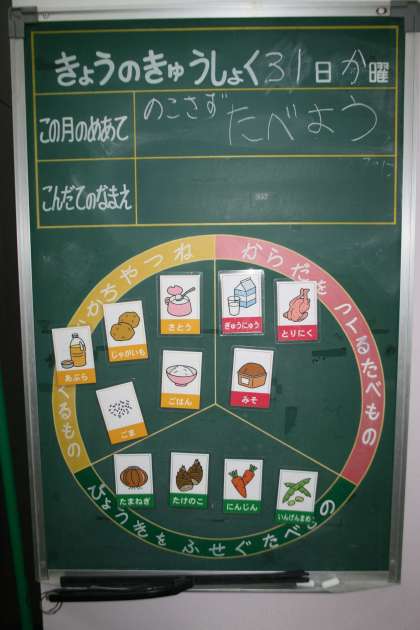 きょうのきゅうしょく31日か曜
この月のめあて
のこさず
たべよう
こんだてのなまえ
ちからやねつ
くるもの
からだをつくるたべもの
びょうきをふせぐたべもの
さとう
ぎゅうにゅう
とりにく
じゃがいも
あぶら
ごはん
みそ
ごま
たまねぎ
たけのこ
にんじん
いんげんまめ